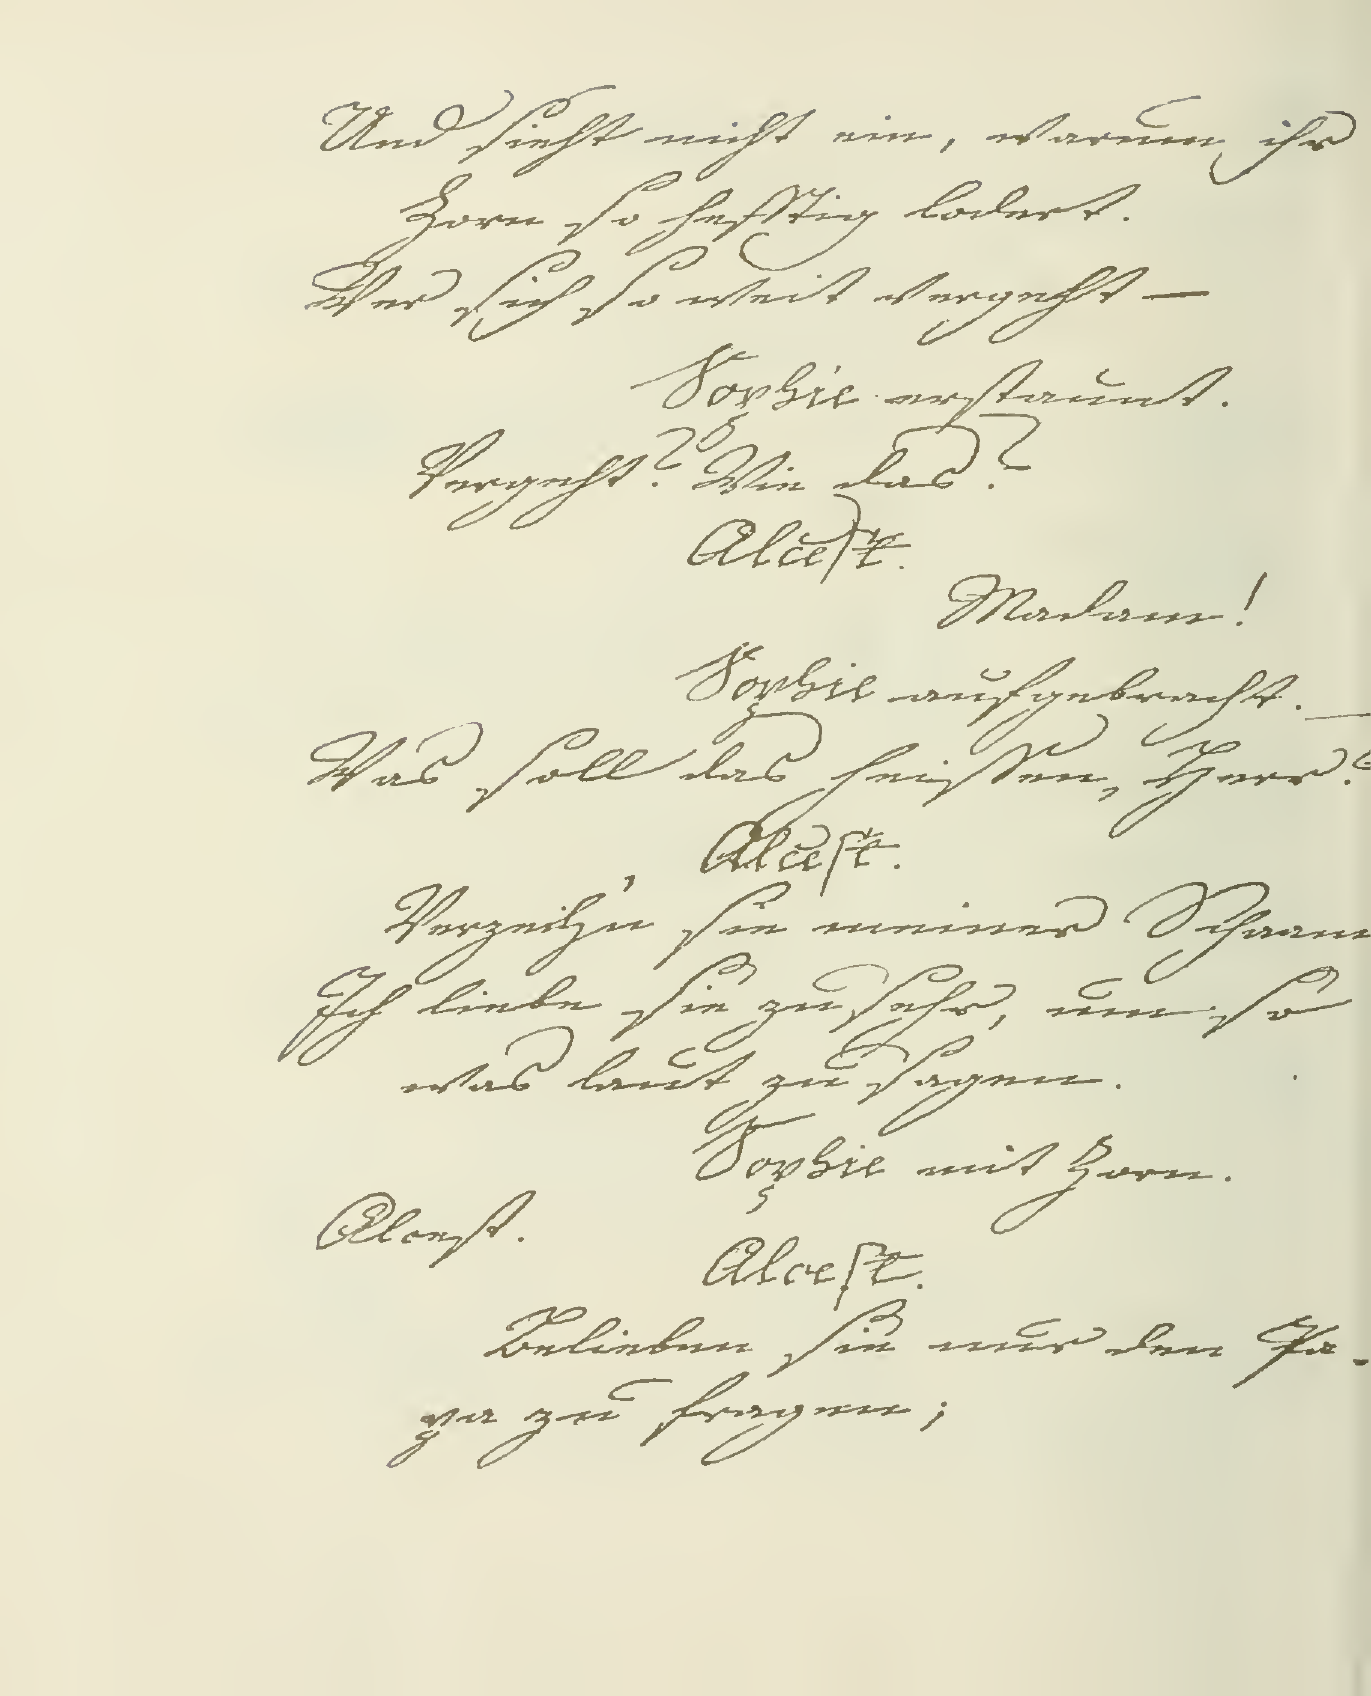 Und sieht nicht ein, warum ihr
Zorn so hefftig lodert.
Wer sich so weit vergeht —
Sophie erstaunt.
Vergeht? Wie das?
Alcest.
Madam!
Sophie aufgebracht.
Was soll das heissen, Herr?
Alcest.
Verzeih'n sie meiner Schaam
Ich liebe sie zu sehr, um so
was laut zu sagen.
Sophie mit Zorn.
Alcest.
Alcest.
Belieben sie nur den Pa-
pa zu fragen;